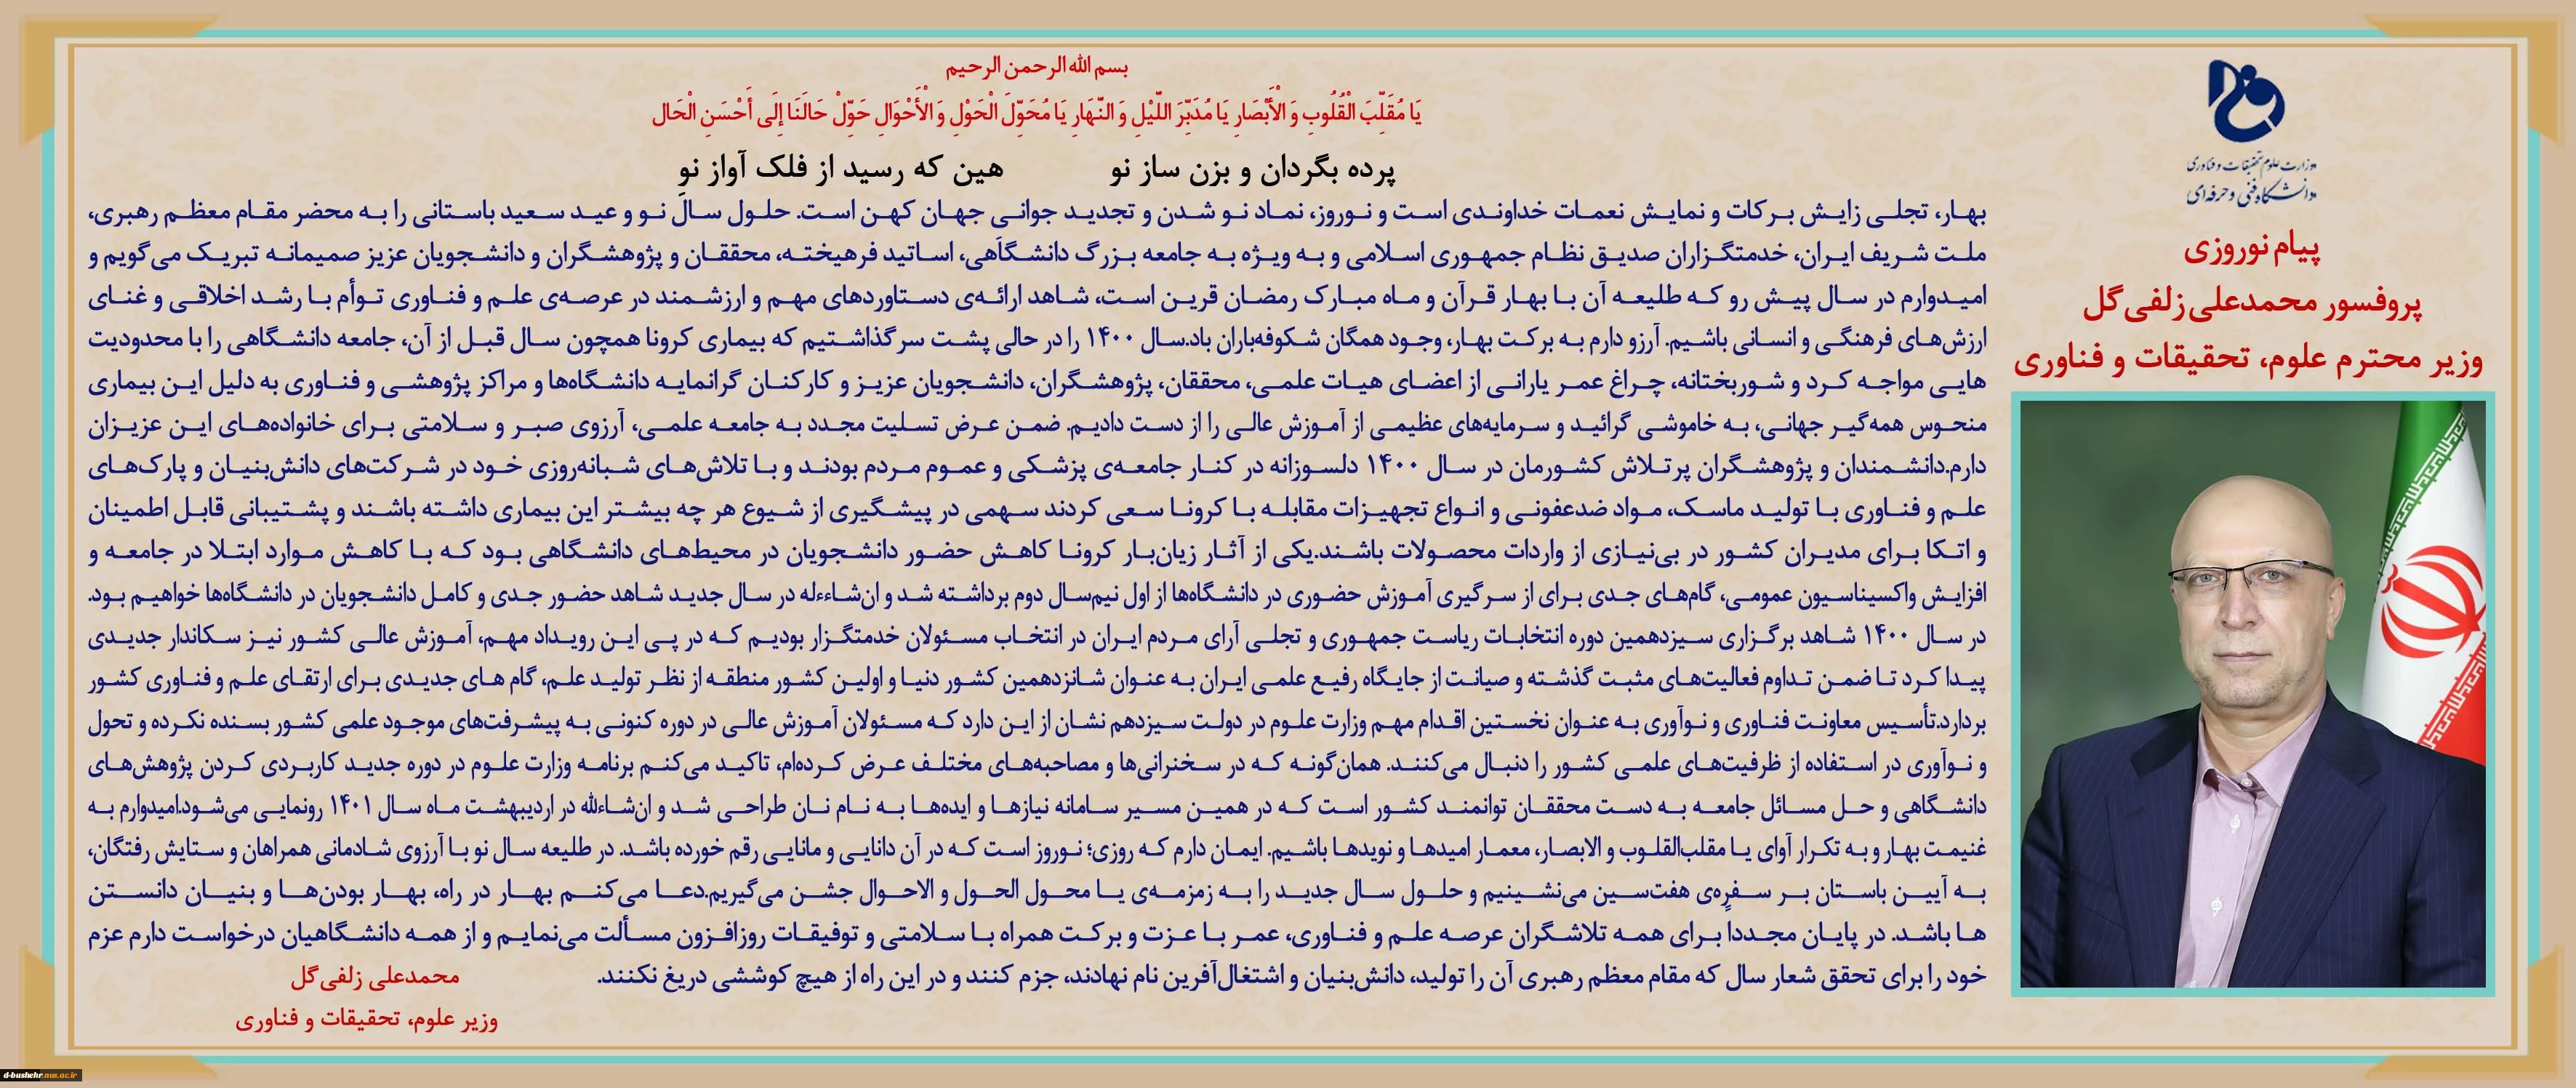 بسم الله الرحمن الرحیم
یَا مُقَلِّبَ الْقُلُوبِ وَ الْأَبْصَارِ یَا مُدَبِّرَ اللَّیْلِ وَ النَّهَارِ یَا مُحَوِّلَ الْحَوْلِ وَ الْأَحْوَالِ حَوِّلْ حَالَنَا إِلَى أَحْسَنِ الْحَال
پرده بگردان و بزن ساز نو هین که رسید از فلک آواز نو
بهار، تجلی زایش برکات و نمایش نعمات خداوندی است و نوروز، نماد نو شدن و تجدید جوانی جهان کهن است. حلول سال نو و عید سعید باستانی را به محضر مقام معظم رهبری،
ملت شریف ایران، خدمتگزاران صدیق نظام جمهوری اسلامی و به ویژه به جامعه بزرگ دانشگاهی، اساتید فرهیخته، محققان و پژوهشگران و دانشجویان عزیز صمیمانه تبریک می‌گویم و
امیدوارم در سال پیش رو که طلیعه آن با بهار قرآن و ماه مبارک رمضان قرین است، شاهد ارائه‌ی دستاوردهای مهم و ارزشمند در عرصه‌ی علم و فناوری توأم با رشد اخلاقی و غنای
ارزش‌های فرهنگی و انسانی باشیم. آرزو دارم به برکت بهار، وجود همگان شکوفه‌باران باد.سال ۱۴۰۰ را در حالی پشت سر گذاشتیم که بیماری کرونا همچون سال قبل از آن، جامعه دانشگاهی را با محدودیت
هایی مواجه کرد و شوربختانه، چراغ عمر یارانی از اعضای هیات علمی، محققان، پژوهشگران، دانشجویان عزیز و کارکنان گرانمایه دانشگاه‌ها و مراکز پژوهشی و فناوری به دلیل این بیماری
منحوس همه‌گیر جهانی، به خاموشی گرائید و سرمایه‌های عظیمی از آموزش عالی را از دست دادیم. ضمن عرض تسلیت مجدد به جامعه علمی، آرزوی صبر و سلامتی برای خانواده‌های این عزیزان
دارم.دانشمندان و پژوهشگران پرتلاش کشورمان در سال ۱۴۰۰ دلسوزانه در کنار جامعه‌ی پزشکی و عموم مردم بودند و با تلاش‌های شبانه‌روزی خود در شرکت‌های دانش‌بنیان و پارک‌های
علم و فناوری با تولید ماسک، مواد ضدعفونی و انواع تجهیزات مقابله با کرونا سعی کردند سهمی در پیشگیری از شیوع هر چه بیشتر این بیماری داشته باشند و پشتیبانی قابل اطمینان
و اتکا برای مدیران کشور در بی‌نیازی از واردات محصولات باشند.یکی از آثار زیان‌بار کرونا کاهش حضور دانشجویان در محیط‌های دانشگاهی بود که با کاهش موارد ابتلا در جامعه و
افزایش واکسیناسیون عمومی، گام‌های جدی برای از سرگیری آموزش حضوری در دانشگاه‌ها از اول نیم‌سال دوم برداشته شد و ان‌شاءءله در سال جدید شاهد حضور جدی و کامل دانشجویان در دانشگاه‌ها خواهیم بود.
در سال ۱۴۰۰ شاهد برگزاری سیزدهمین دوره انتخابات ریاست جمهوری و تجلی آرای مردم ایران در انتخاب مسئولان خدمتگزار بودیم که در پی این رویداد مهم، آموزش عالی کشور نیز سکاندار جدیدی
پیدا کرد تا ضمن تداوم فعالیت‌های مثبت گذشته و صیانت از جایگاه رفیع علمی ایران به عنوان شانزدهمین کشور دنیا و اولین کشور منطقه از نظر تولید علم، گام های جدیدی برای ارتقای علم و فناوری کشور
بردارد.تأسیس معاونت فناوری و نوآوری به عنوان نخستین اقدام مهم وزارت علوم در دولت سیزدهم نشان از این دارد که مسئولان آموزش عالی در دوره کنونی به پیشرفت‌های موجود علمی کشور بسنده نکرده و تحول
و نوآوری در استفاده از ظرفیت‌های علمی کشور را دنبال می‌کنند. همان‌گونه که در سخنرانی‌ها و مصاحبه‌های مختلف عرض کرده‌ام، تاکید می‌کنم برنامه وزارت علوم در دوره جدید کاربردی کردن پژوهش‌های
دانشگاهی و حل مسائل جامعه به دست محققان توانمند کشور است که در همین مسیر سامانه نیازها و ایده‌ها به نام نان طراحی شد و ان‌شاءلله در اردیبهشت ماه سال ۱۴۰۱ رونمایی می‌شود.امیدوارم به
غنیمت بهار و به تکرار آوای یا مقلب‌القلوب و الابصار، معمار امیدها و نویدها باشیم. ایمان دارم که روزی؛ نوروز است که در آن دانایی و مانایی رقم خورده باشد. در طلیعه سال نو با آرزوی شادمانی همراهان و ستایش رفتگان،
به آیین باستان بر سفره‌ی هفت‌سین می‌نشینیم و حلول سال جدید را به زمزمه‌ی یا محول الحول و الاحوال جشن می‌گیریم.دعا می‌کنم بهار در راه، بهار بودن‌ها و بنیان دانستن
ها باشد. در پایان مجددا برای همه تلاشگران عرصه علم و فناوری، عمر با عزت و برکت همراه با سلامتی و توفیقات روزافزون مسألت می‌نمایم و از همه دانشگاهیان درخواست دارم عزم
خود را برای تحقق شعار سال که مقام معظم رهبری آن را تولید، دانش‌بنیان و اشتغال‌آفرین نام نهادند، جزم کنند و در این راه از هیچ کوششی دریغ نکنند.
محمدعلی زلفی‌گل
وزیر علوم، تحقیقات و فناوری
وزارت علوم تحقیقات و فناوری
دانشگاه فنی و حرفه‌ای
پیام نوروزی
پروفسور محمدعلی زلفی‌گل
وزیر محترم علوم، تحقیقات و فناوری
d-bushehr.nus.ac.ir